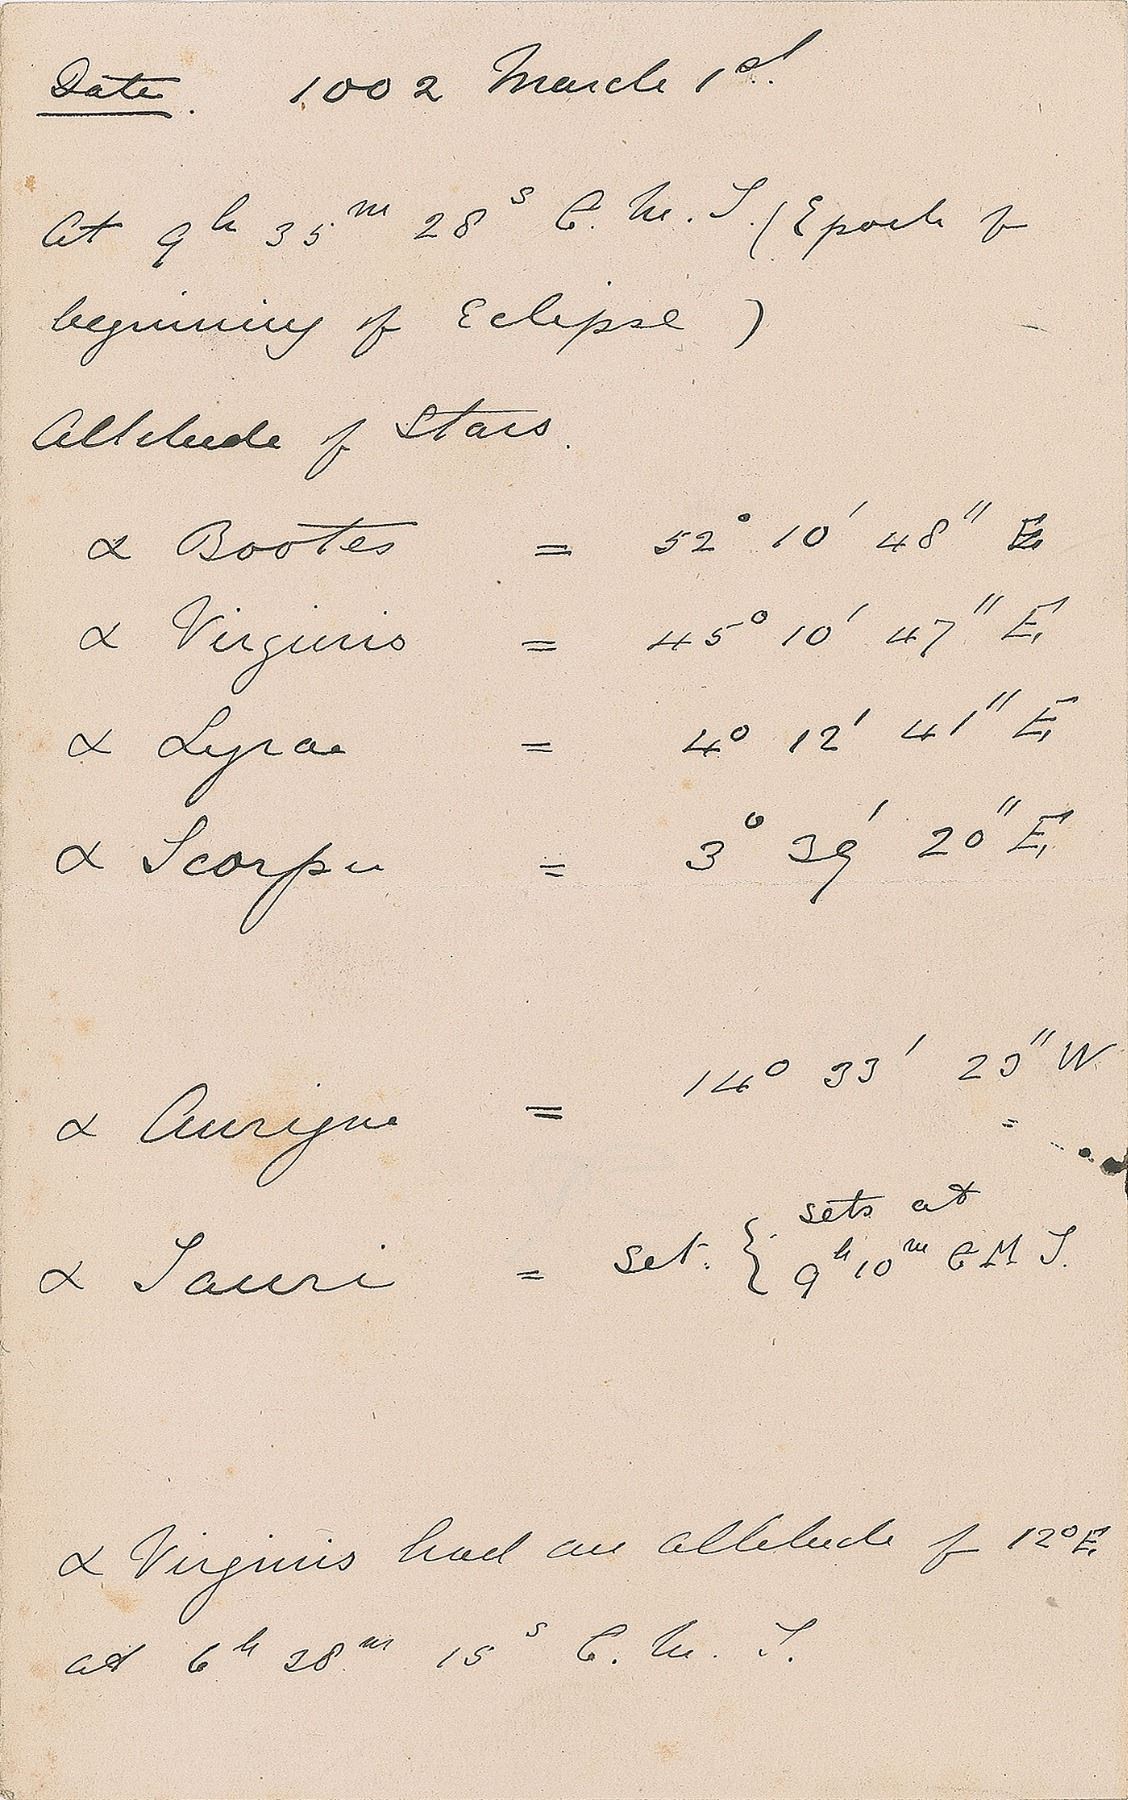 Date. 1002 March 1st.
At 9h 35m 28s C. M. T. (Epoch of
beginning of Eclipse)
Altitude of Stars.
α Bootes = 52° 10' 48" E.
α Virginis = 45° 10' 47" E.
α Lyrae = 4° 12' 41" E.
α Scorpii = 3° 39' 20" E.
α Aurigae = 14° 33' 23" W
α Tauri = Set. { sets at
9h 10m C M T.
α Virginis had an altitude of 12° E.
at 6h 28m 15s C. M. T.